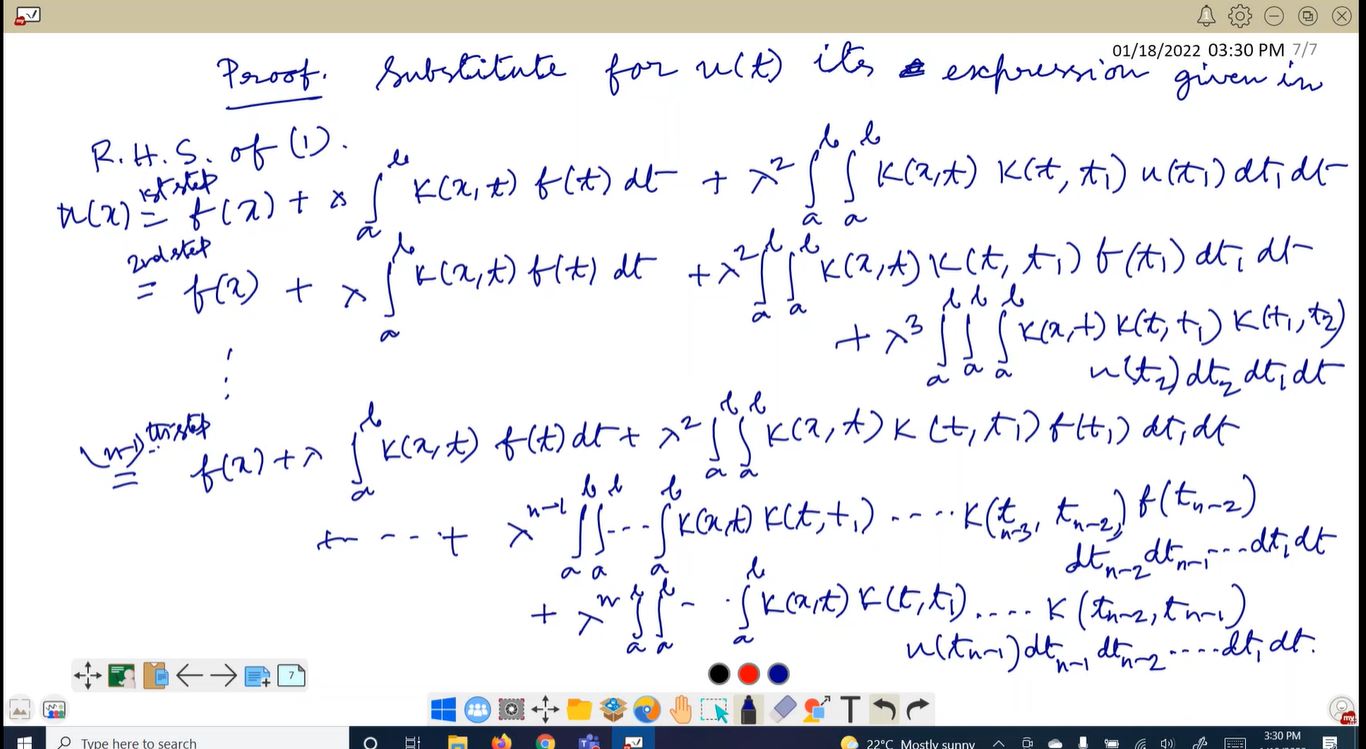 01/18/2022 03:30 PM 7/7
Proof. Substitute for u(t) its expression given in
R.H.S. of (1).
1st step
u(x) = f(x) + λ ∫_a^b K(x,t) f(t) dt + λ² ∫_a^b ∫_a^b K(x,t) K(t,t₁) u(t₁) dt₁ dt
2nd step
= f(x) + λ ∫_a^b K(x,t) f(t) dt + λ² ∫_a^b ∫_a^b K(x,t) K(t,t₁) f(t₁) dt₁ dt
+ λ³ ∫_a^b ∫_a^b ∫_a^b K(x,t) K(t,t₁) K(t₁,t₂)
u(t₂) dt₂ dt₁ dt
⋮
(n-1)th step
= f(x) + λ ∫_a^b K(x,t) f(t) dt + λ² ∫_a^b ∫_a^b K(x,t) K(t,t₁) f(t₁) dt₁ dt
+ --- + λ^{n-1} ∫_a^b ∫_a^b --- ∫_a^b K(x,t) K(t,t₁) ---- K(t_{n-3}, t_{n-2}) f(t_{n-2})
dt_{n-2} dt_{n-1} ---- dt₁ dt
+ λ^n ∫_a^b ∫_a^b - · ∫_a^b K(x,t) K(t,t₁) ..... K(t_{n-2}, t_{n-1})
u(t_{n-1}) dt_{n-1} dt_{n-2} ----- dt₁ dt.
7
T
Type here to search
22°C Mostly sunny
3:30 PM